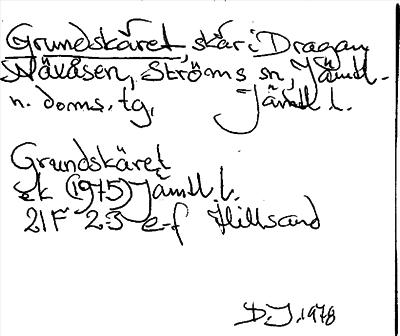 Grundskäret, skär i Dragan,
Nävåsen, Ströms sn, Jämtl.
n. doms. tg, Jämtl l.
Grundskäret
ek (1975) Jämtl l.
21F 2-3 e-f Hillsand
D.J. 1978